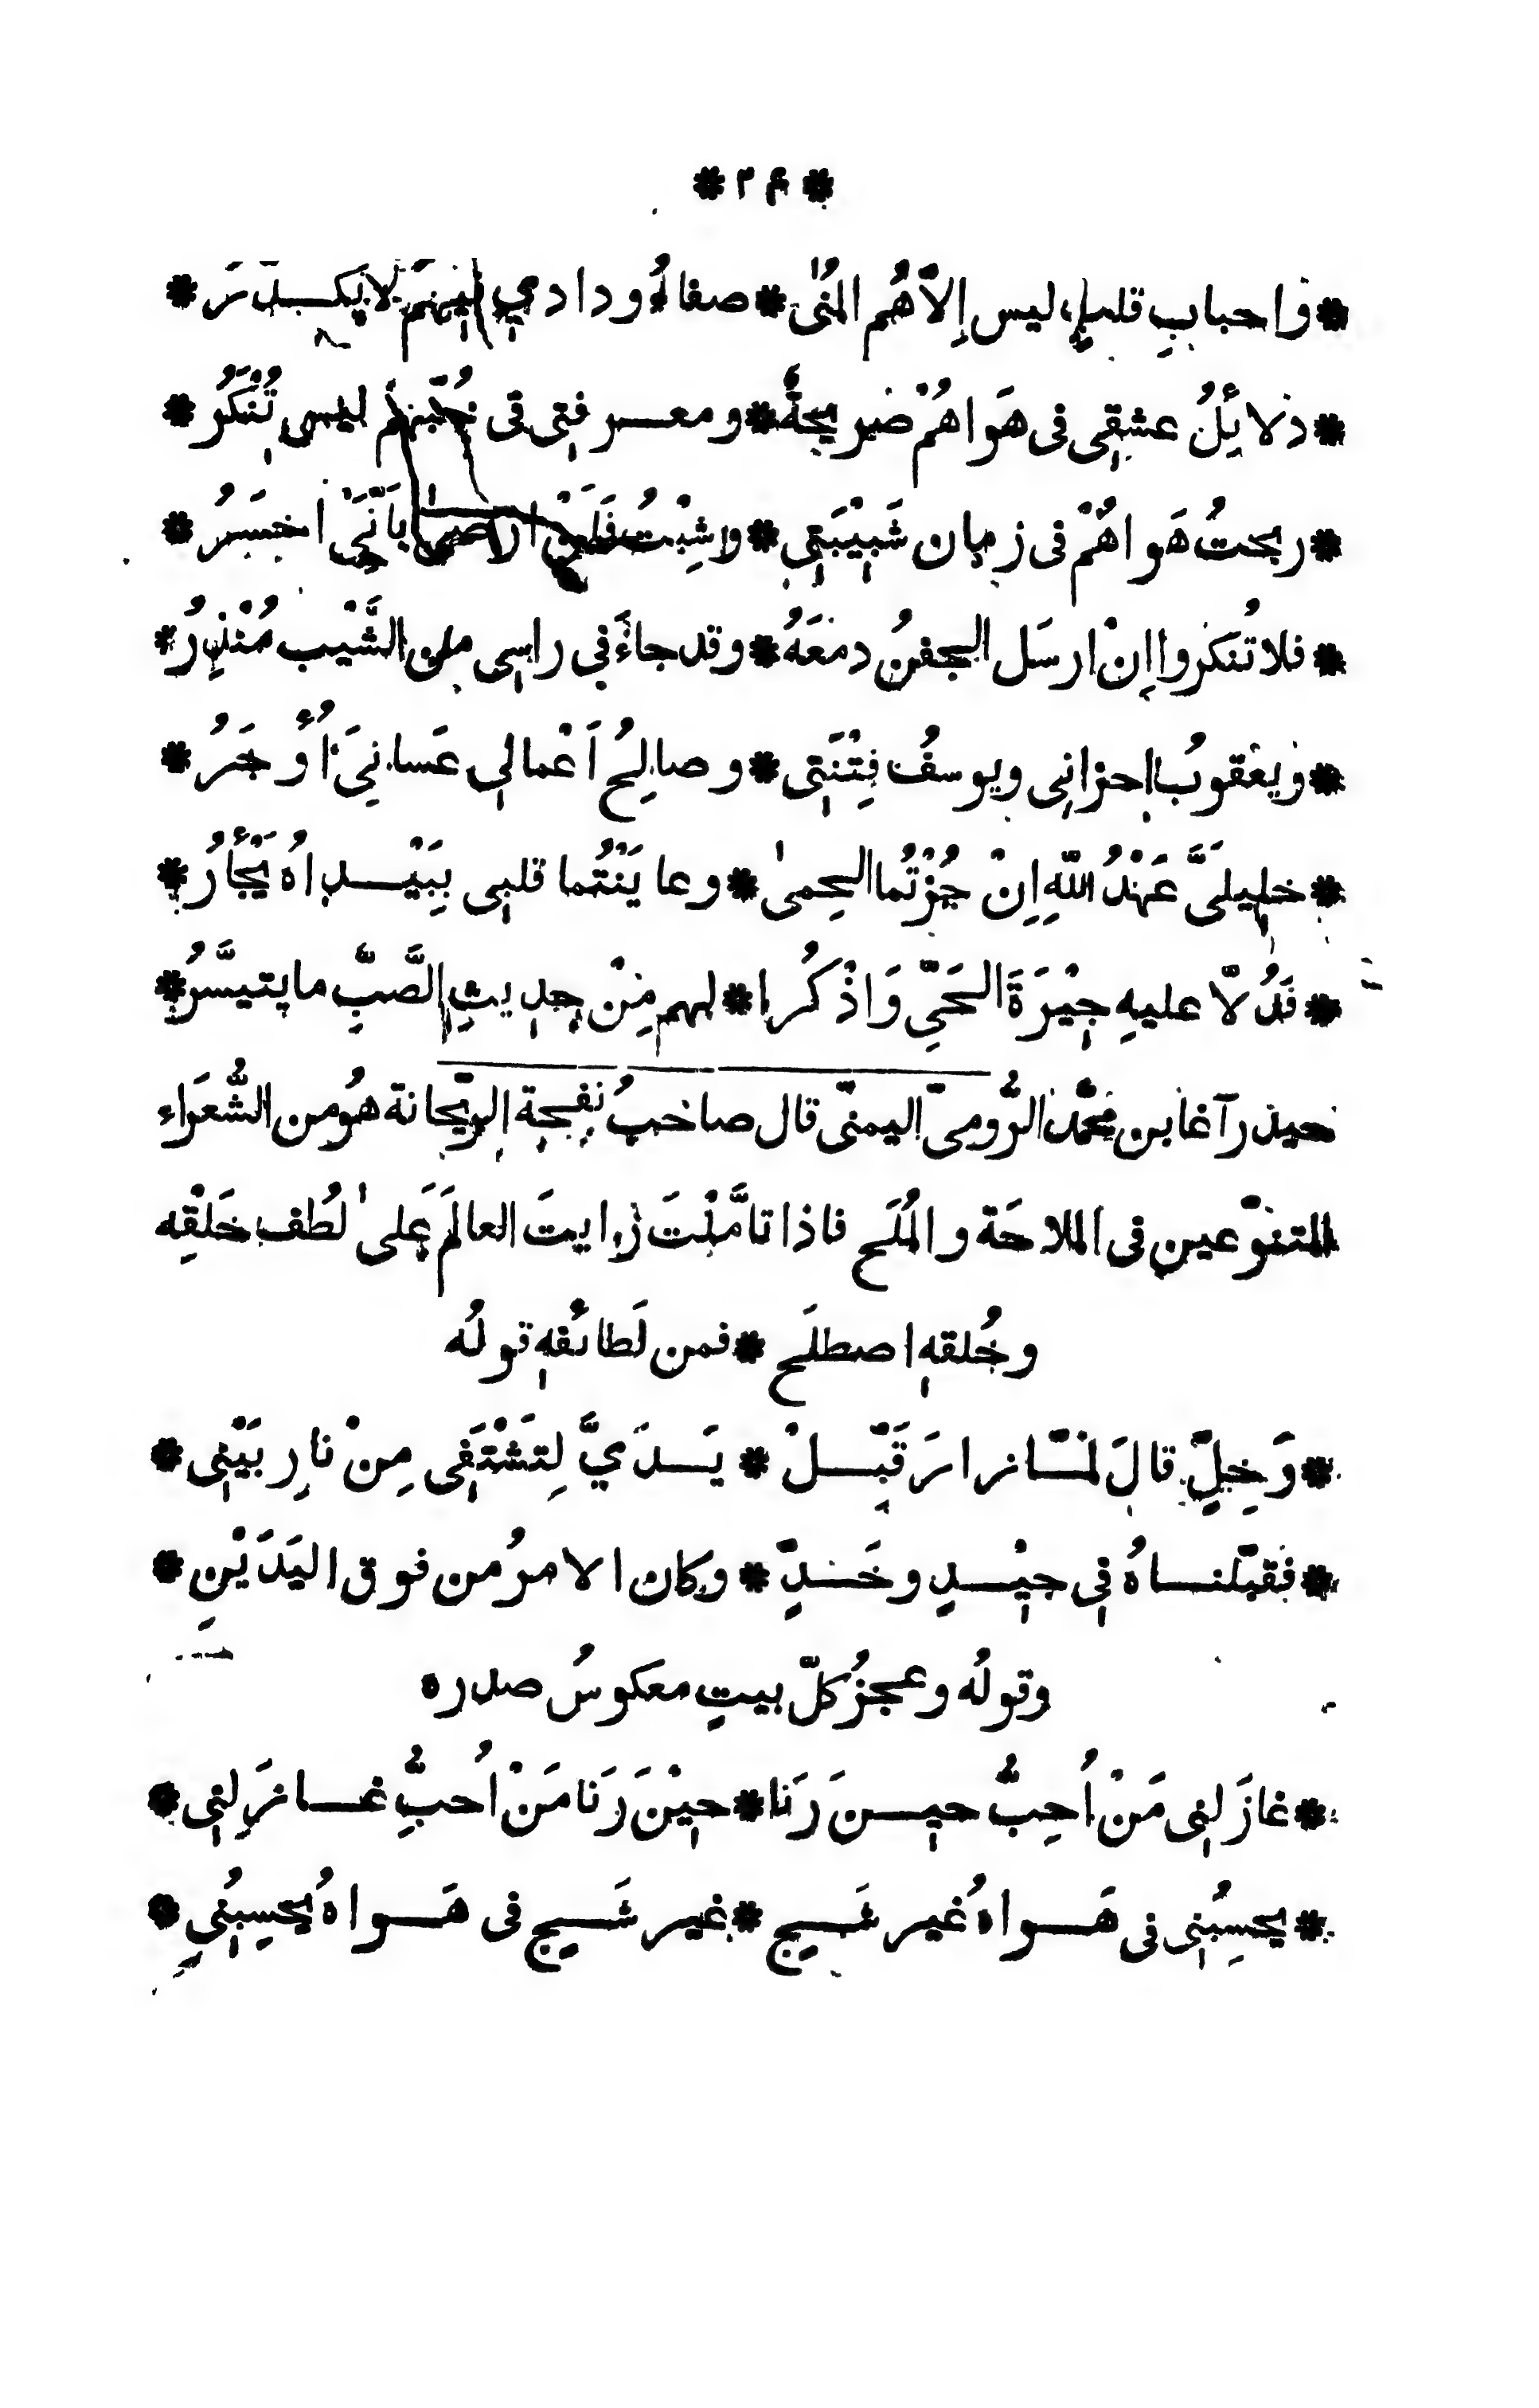 * ٢٤ *
* واحبابِ قلبي ليس إلاّ هُم المُنىٰ * صفاءُ ودادي فيهمُ لا يكــدّرُ *
* دلائلُ عشقِي فى هَواهُمْ صريحةٌ * ومعــرفتِى فى حُبّهم ليس تُنْكَرُ *
* ربحتُ هَواهُمْ فى زمان شَبِيْبَتِي * وشِبْتُ فَلَمْ ارْضىٰ بأنّيَ اخسَرُ *
* فلا تُنكروا إنْ ارسَل الجفنُ دمعَهُ * وقد جاءَ فِي راسِى من الشَّيْب مُنْذِرُ *
* ويعقوبُ احزانِى ويوسفُ فِتْنَتِى * وصالِحُ اَعْمالِى عَسانِيَ اُؤجَرُ *
* خليلَيَّ عَهْدُ اللّهِ اِنْ جُزْتُما الحِمىٰ * وعايَنْتُما قلبِى بِبَيْــداهُ يَجْأَرُ *
* فَدُلاّ عليهِ جِيْرَةَ الحَيِّ وَاذْكُرا * لهم مِنْ حديثِ الصَّبِّ ما يتيسَّرُ *
حيدر آغا بن محمّد الرُّومىّ اليمنىّ قال صاحبُ نفحة الريحانة هُو من الشُّعَراء
المتنوّعين فى الملاحَة والمُلَح فاذا تامَّلْتَ رايتَ العالَمَ عَلىٰ لُطف خَلْقِه
وخُلقهِ اصطلَح * فمن لَطائفهِ قولُه
* وَخِلٍّ قالَ لمّــا زارَ قَبِّــلْ * يَــدَيَّ لِتَشْتَفِى مِنْ نارِ بَيْنِى *
* فقبّلنــاهُ فِى جِيْــدٍ وخَــدٍّ * وكان الامرُ من فوق اليَدَيْنِ *
وقولُه وعجزُ كلّ بيتٍ معكوسُ صدره
* غازَلنِى مَنْ اُحِبُّ حيــنَ رَنا * حِيْنَ رَنا مَنْ اُحبُّ غــازَلنِى *
* يحسِبُنِى فى هَــواهُ غير شَــجٍ * غير شَــجٍ فى هَــواهُ يحسِبُنِى *